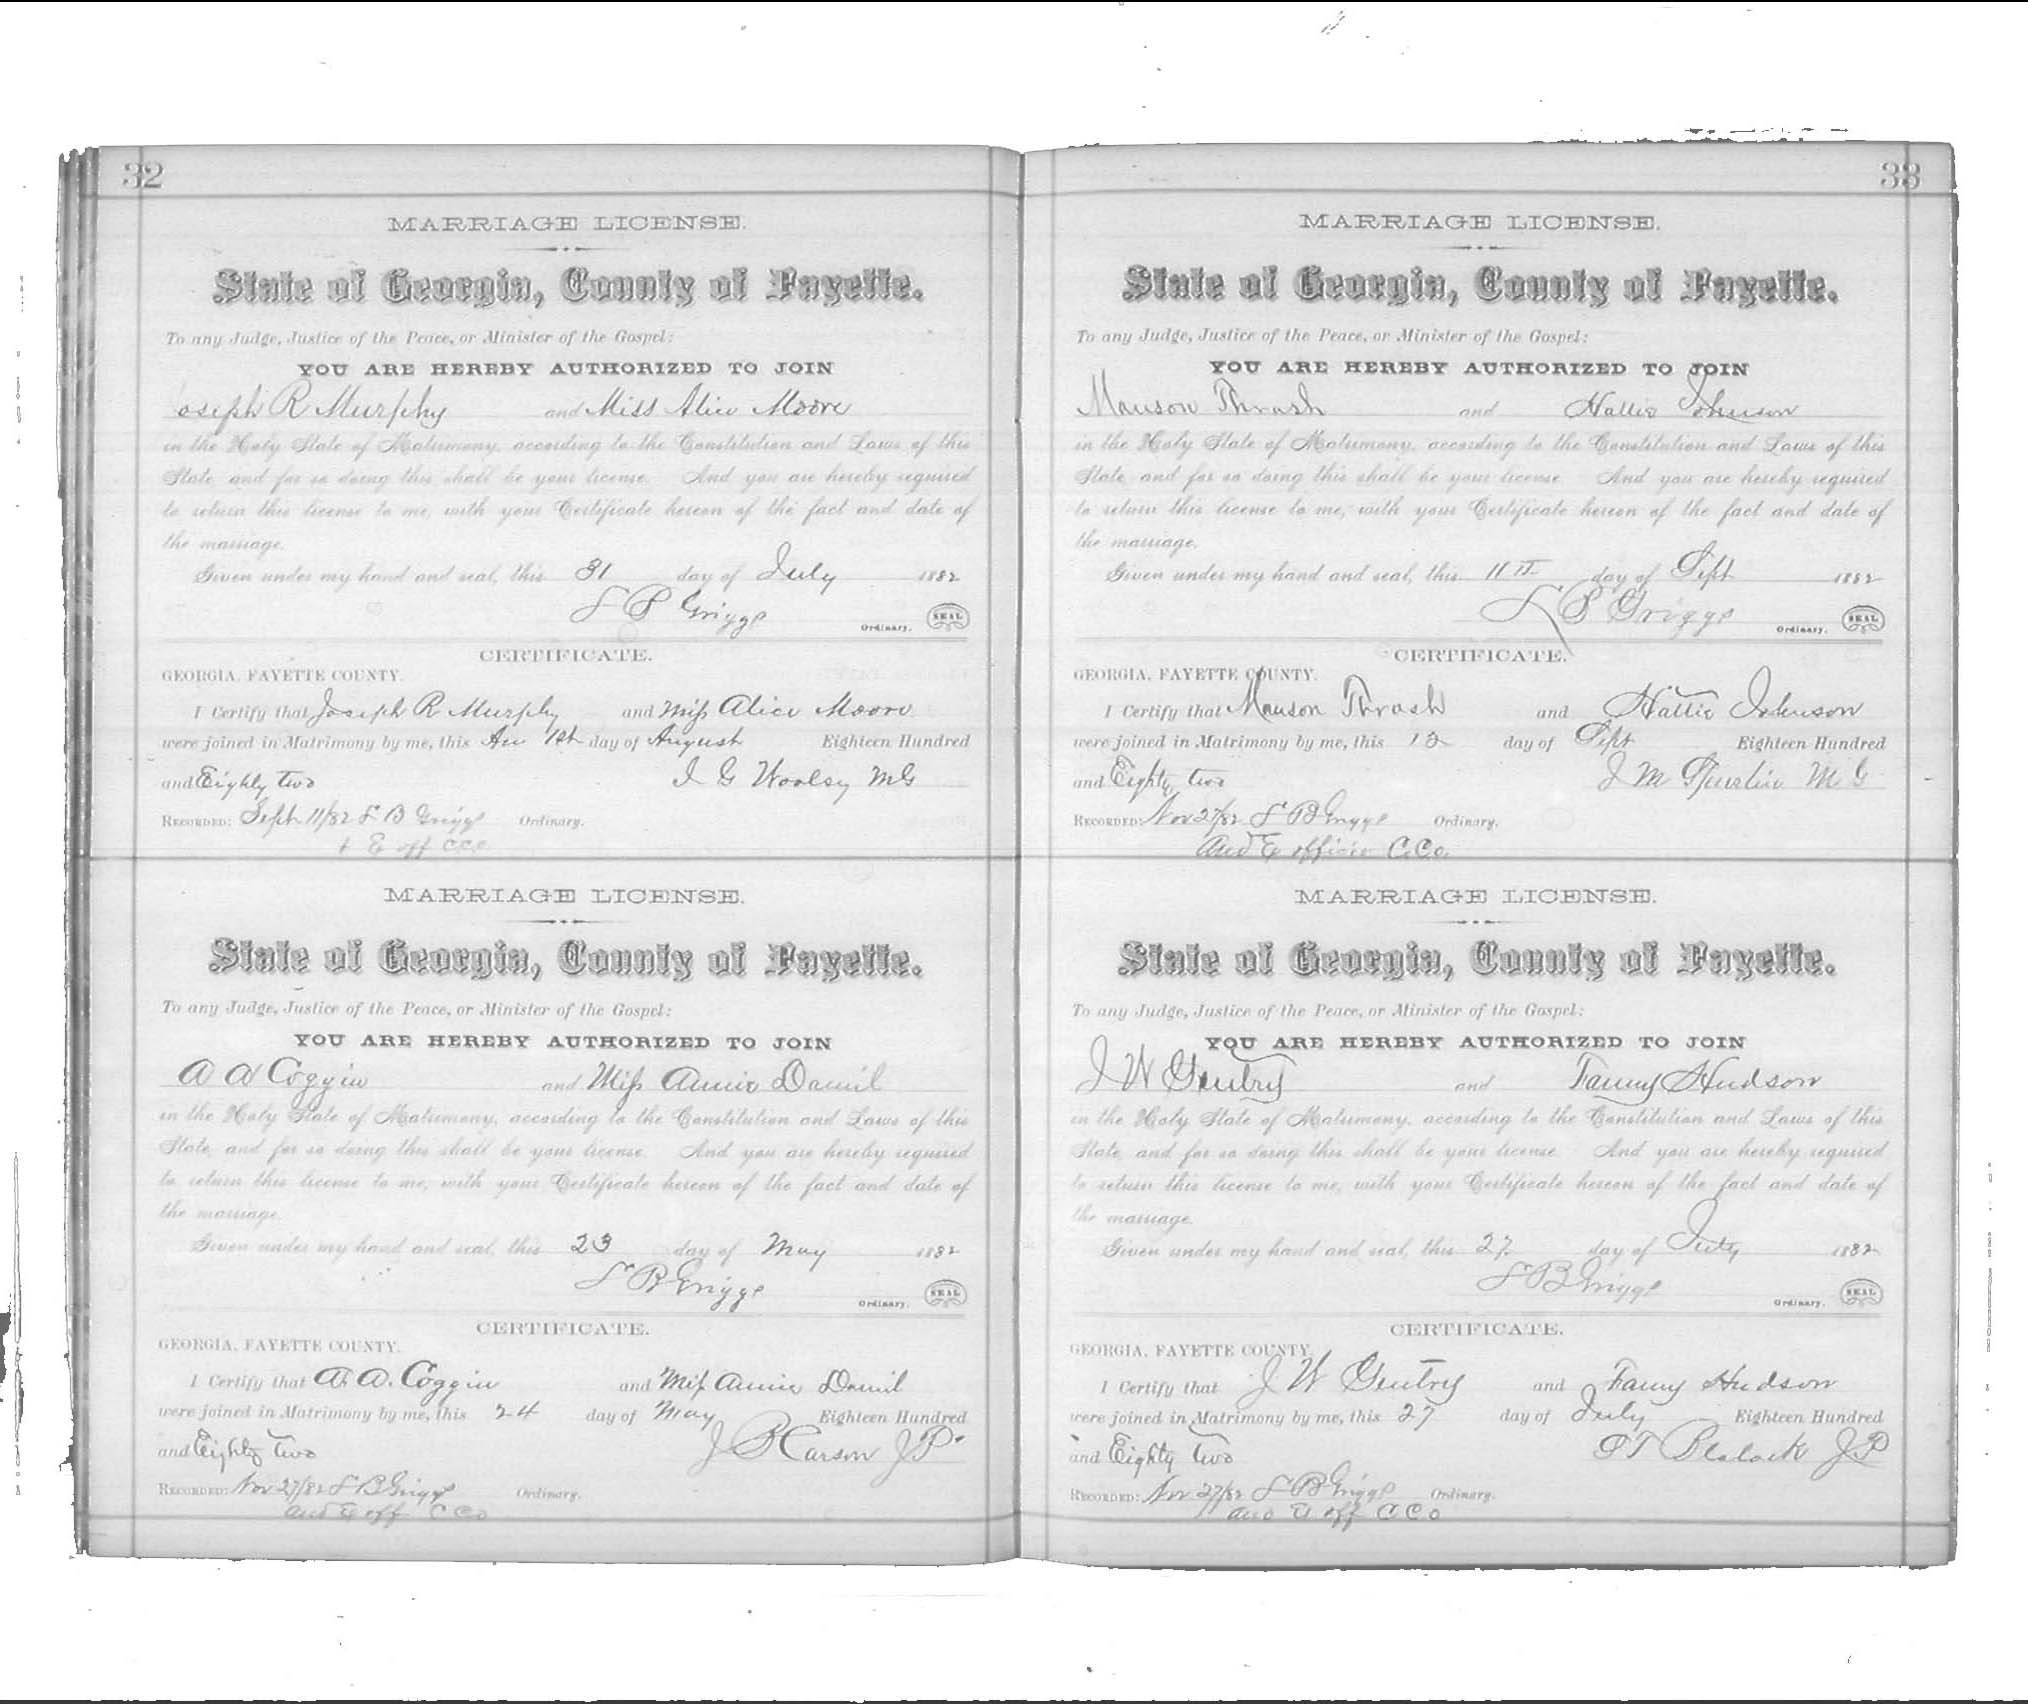 32
MARRIAGE LICENSE.
State of Georgia, County of Fayette.
To any Judge, Justice of the Peace, or Minister of the Gospel:
YOU ARE HEREBY AUTHORIZED TO JOIN
Joseph R Murphy and Miss Alice Moore
in the Holy State of Matrimony, according to the Constitution and Laws of this
State, and for so doing this shall be your license. And you are hereby required
to return this license to me, with your Certificate hereon of the fact and date of
the marriage.
Given under my hand and seal, this 31 day of July 1882
L B Griggs
Ordinary. SEAL
CERTIFICATE.
GEORGIA, FAYETTE COUNTY.
I Certify that Joseph R Murphy and Miss Alice Moore
were joined in Matrimony by me, this 1st day of August Eighteen Hundred
and Eighty two I G Woolsey M G
RECORDED: Sept 11/82 L B Griggs Ordinary.
+ E off C.C.O
MARRIAGE LICENSE.
State of Georgia, County of Fayette.
To any Judge, Justice of the Peace, or Minister of the Gospel:
YOU ARE HEREBY AUTHORIZED TO JOIN
A A Coggin and Miss Annie Daniel
in the Holy State of Matrimony, according to the Constitution and Laws of this
State, and for so doing this shall be your license. And you are hereby required
to return this license to me, with your Certificate hereon of the fact and date of
the marriage.
Given under my hand and seal, this 23 day of May 1882
L B Griggs
Ordinary. SEAL
CERTIFICATE.
GEORGIA, FAYETTE COUNTY.
I Certify that A. A. Coggin and Miss Annie Daniel
were joined in Matrimony by me, this 24 day of May Eighteen Hundred
and Eighty two J B Carson J P.
RECORDED: Nov 27/82 L B Griggs Ordinary.
and E off C C O
33
MARRIAGE LICENSE.
State of Georgia, County of Fayette.
To any Judge, Justice of the Peace, or Minister of the Gospel:
YOU ARE HEREBY AUTHORIZED TO JOIN
Manson Thrash and Hattie Johnson
in the Holy State of Matrimony, according to the Constitution and Laws of this
State, and for so doing this shall be your license. And you are hereby required
to return this license to me, with your Certificate hereon of the fact and date of
the marriage.
Given under my hand and seal, this 11 day of Sept 1882
L B Griggs
Ordinary. SEAL
CERTIFICATE.
GEORGIA, FAYETTE COUNTY.
I Certify that Manson Thrash and Hattie Johnson
were joined in Matrimony by me, this 12 day of Sept Eighteen Hundred
and Eighty two J M M G
RECORDED: Nov 27/82 L B Griggs Ordinary.
and E officio C.C.O.
MARRIAGE LICENSE.
State of Georgia, County of Fayette.
To any Judge, Justice of the Peace, or Minister of the Gospel:
YOU ARE HEREBY AUTHORIZED TO JOIN
J W Gentry and Fanny Hudson
in the Holy State of Matrimony, according to the Constitution and Laws of this
State, and for so doing this shall be your license. And you are hereby required
to return this license to me, with your Certificate hereon of the fact and date of
the marriage.
Given under my hand and seal, this 27 day of July 1882
L B Griggs
Ordinary. SEAL
CERTIFICATE.
GEORGIA, FAYETTE COUNTY.
I Certify that J W Gentry and Fanny Hudson
were joined in Matrimony by me, this 27 day of July Eighteen Hundred
and Eighty two P T Blalock J P
RECORDED: Nov 27/82 L B Griggs Ordinary.
and E off C C O